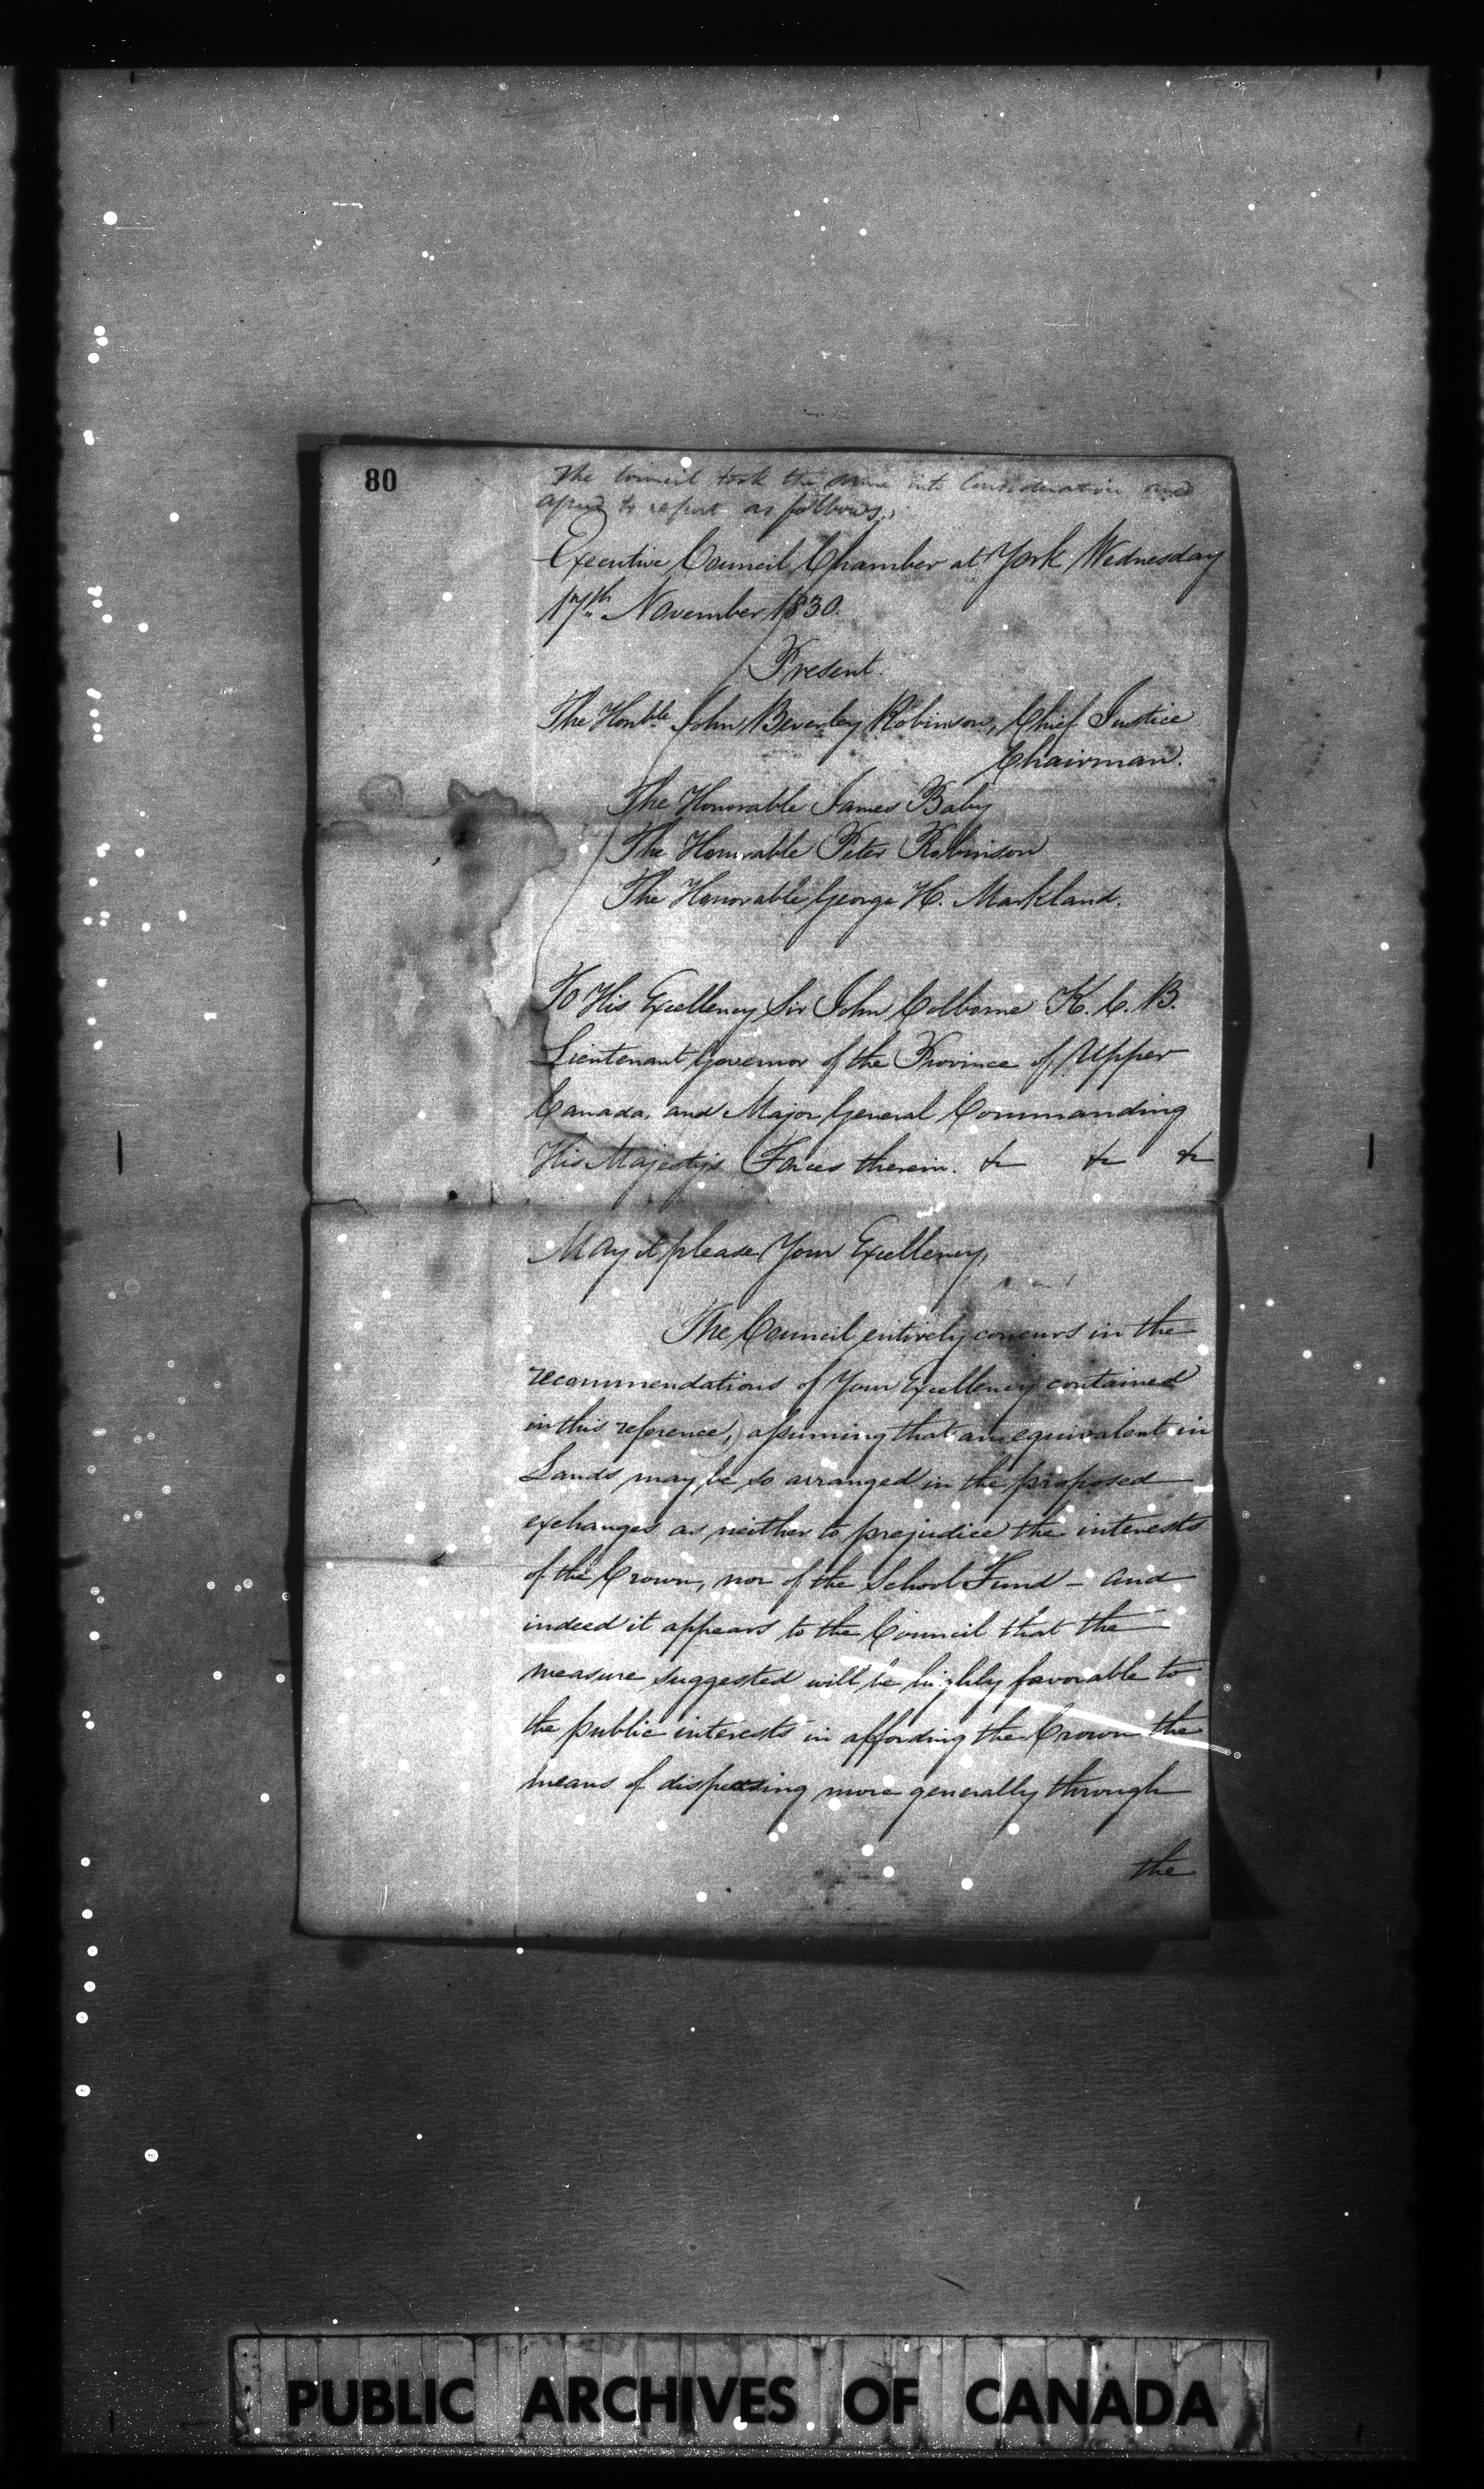 80
The Council took the same into Consideration and
agreed to report as follows.,
Executive Council Chamber at York Wednesday
17th November 1830.
Present.
The Honble. John Beverley Robinson, Chief Justice
Chairman.
The Honorable James Baby
The Honorable Peter Robinson
The Honorable George H. Markland.
To His Excellency Sir John Colborne K.C.B.
Lieutenant Governor of the Province of Upper
Canada, and Major General Commanding
His Majesty's Forces therein. &c &c &c
May it please Your Excellency,
The Council entirely concurs in the
recommendations of Your Excellency contained
in this reference, assuming that an equivalent in
Lands may be so arranged in the proposed
exchanges as neither to prejudice the interests
of the Crown, nor of the School Fund - and
indeed it appears to the Council that the
measure suggested will be highly favorable to
the public interests in affording the Crown the
means of dispersing more generally through
the
PUBLIC ARCHIVES OF CANADA